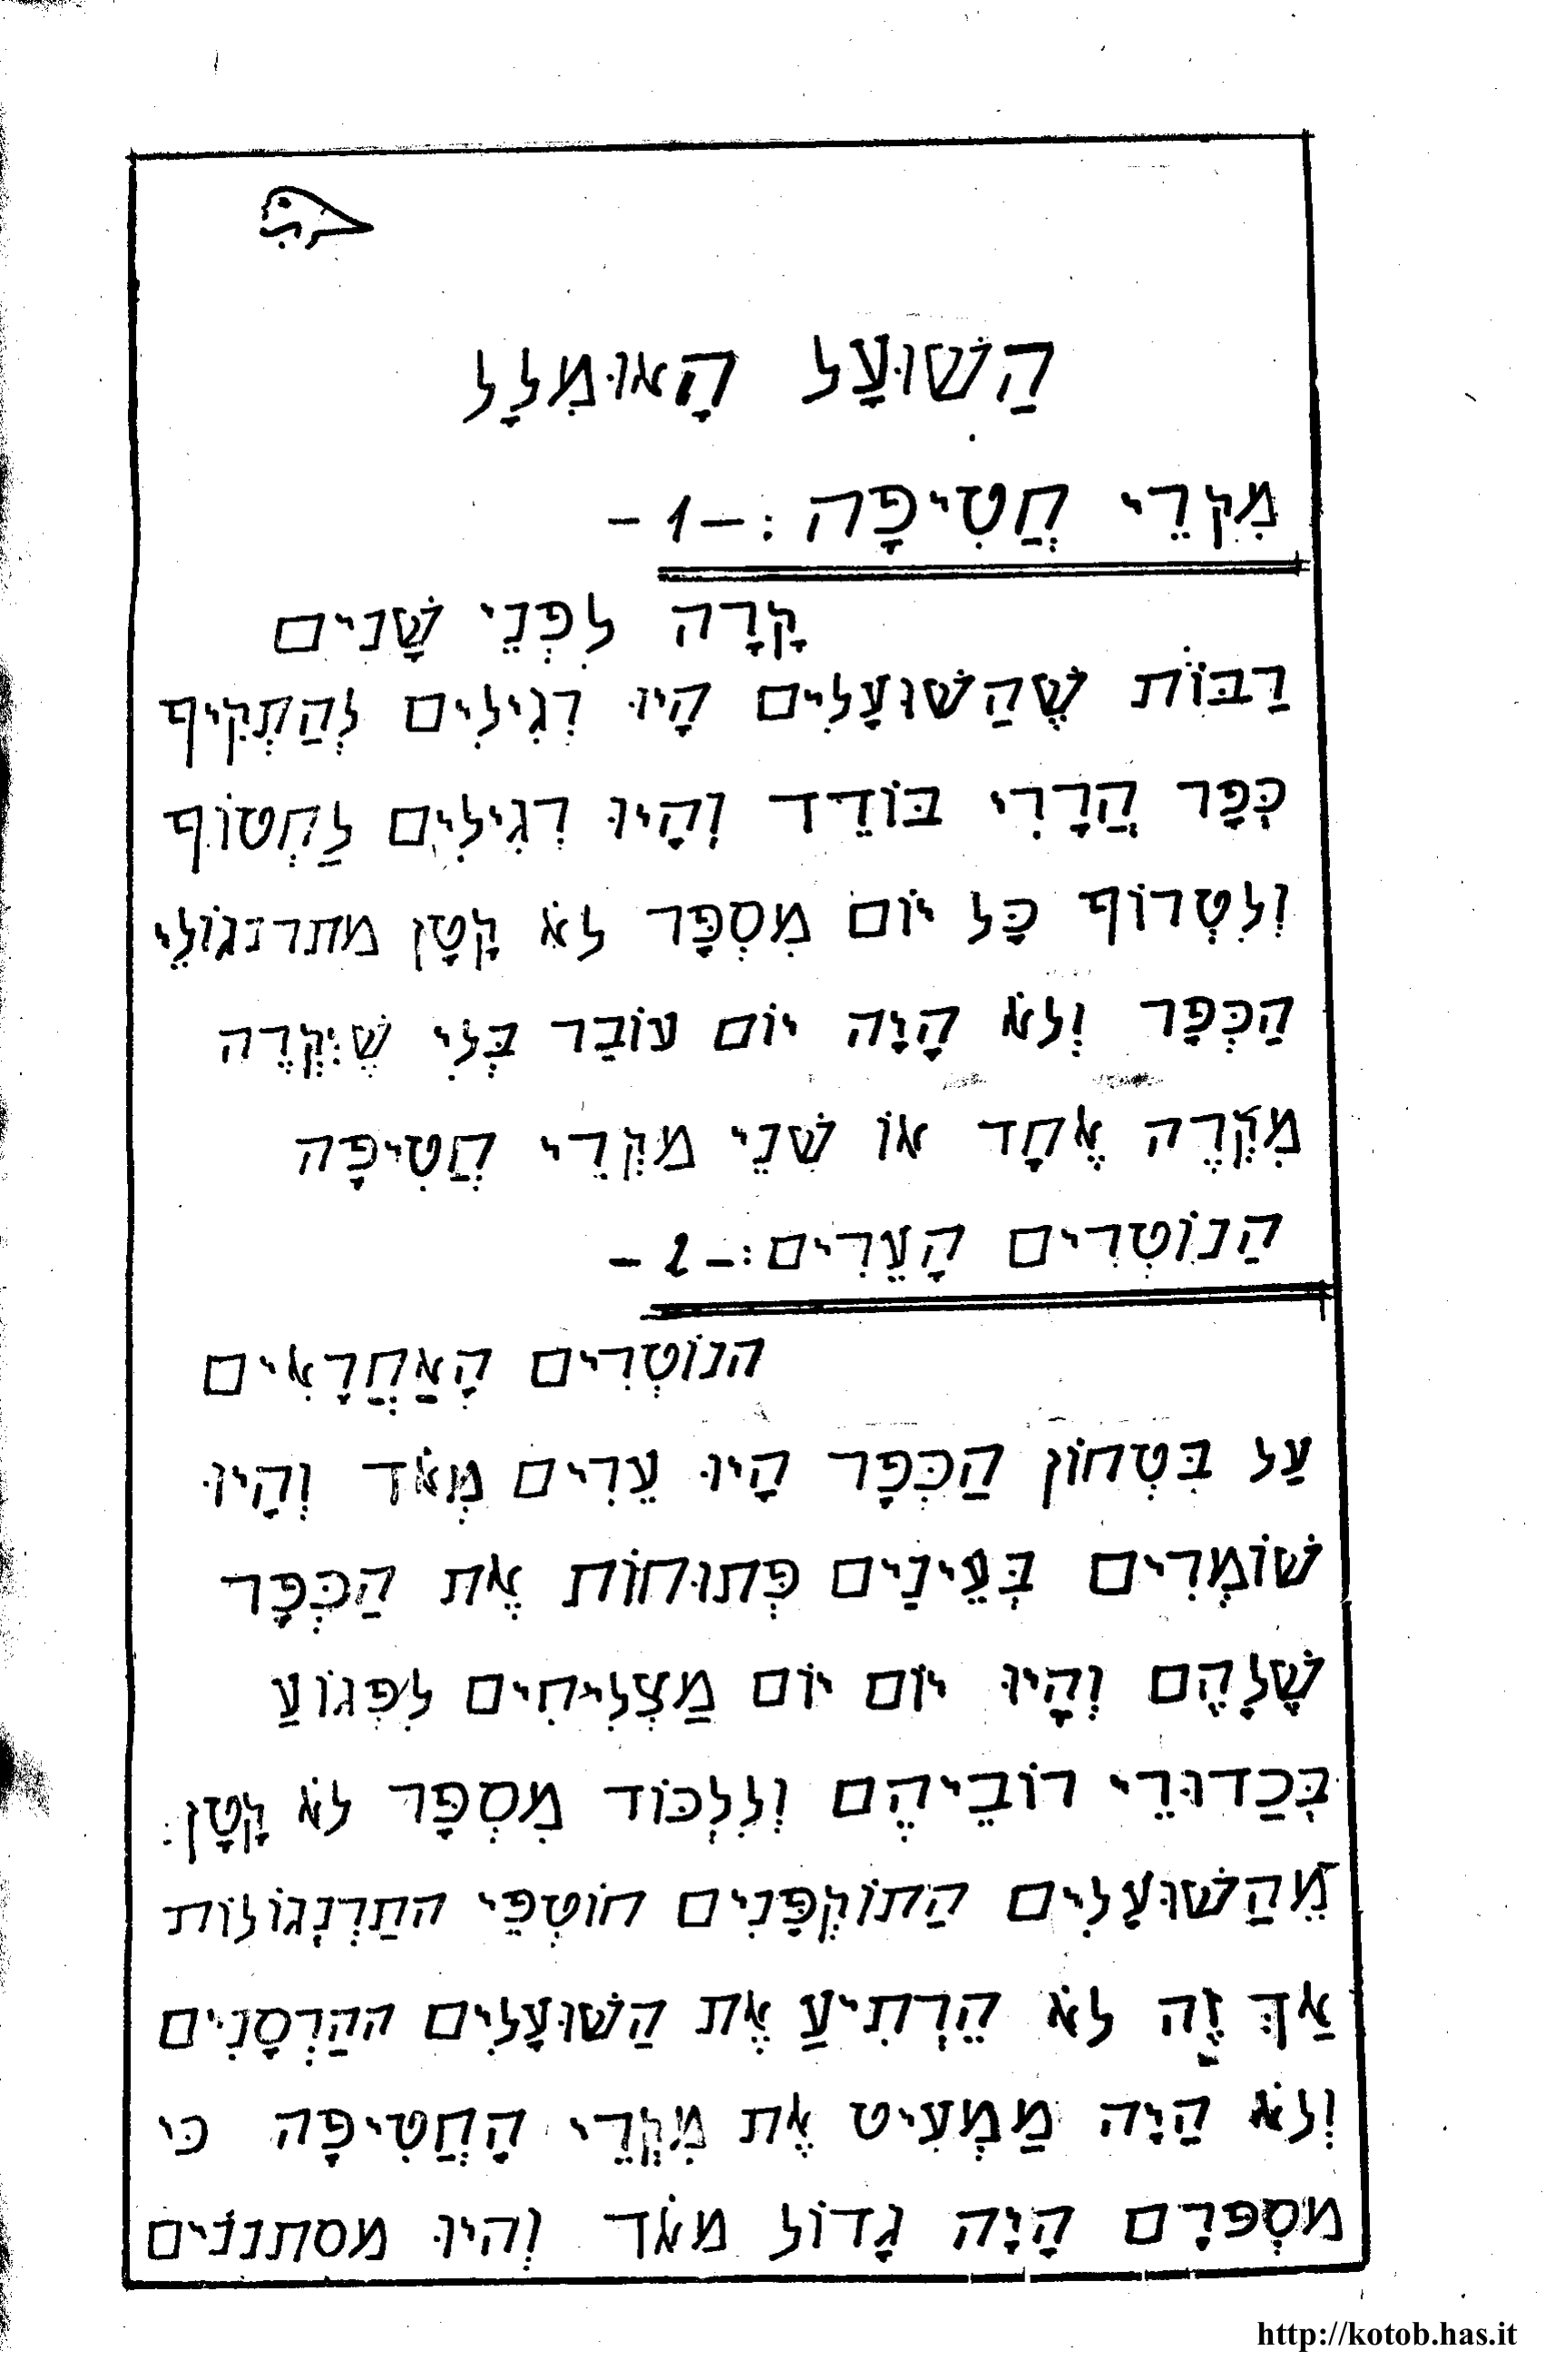 הַשׁוּעָל הָאוּמְלָל
מִקְרֵי חֲטִיפָה :– 1 –
קָרָה לִפְנֵי שָׁנִים
רַבּוֹת שֶׁהַשׁוּעָלִים הָיוּ רְגִילִים לְהַתְקִיף
כְּפָר הֲרָרִי בּוֹדֵד וְהָיוּ רְגִילִים לַחְטוֹף
וְלִטְרוֹף כָּל יוֹם מִסְפָּר לֹא קָטָן מתרנגוֹלֵי
הַכְּפָר וְלֹא הָיָה יוֹם עוֹבַר בְּלִי שֶׁיִקְרֶה
מִקְרֶה אֶחָד אוֹ שְׁנֵי מִקְרֵי חֲטִיפָּה
הַנוֹטְרִים הָעֵרִים :– 2 –
הנוֹטְרִים הָאַחֲרָאִים
עַל בִּטְחוֹן הַכְּפָר הָיוּ עֵרִים מְאֹד וְהָיוּ
שׁוֹמְרִים בְּעֵינַיִם פְּתוּחוֹת אֶת הַכְּפָר
שֶׁלָהֶם וְהָיוּ יוֹם יוֹם מַצְלִיחִים לִפְגוֹעַ
בְּכַדוּרֵי רוֹבֵיהֶם וְלִלְכּוֹד מִסְפָּר לֹא קָטָן :
מֵהַשׁוּעָלִים הַתוֹקְפָּנִים חוֹטְפֵי התַרְנְגוֹלוֹת
אַךְ זֶה לֹא הֵרְתִיעַ אֶת הַשׁוּעָלִים ההַרְסָנִים
וְלֹא הָיָה מַמְעִיט אֶת מִקְרֵי הָחֲטִיפָּה כּי
מסְפּרָם הָיָה גָדוֹל מאֹד וְהיוּ מסתננים
http://kotob.has.it